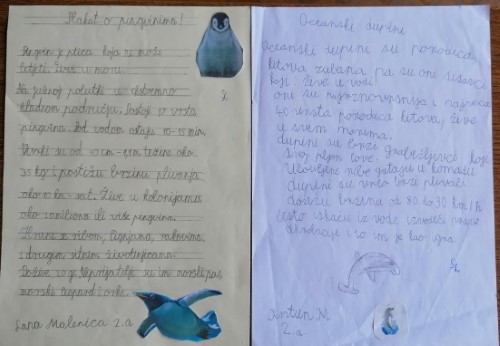 Plakat o pingvinima!
Pingvin je ptica koja ne može
letjeti. Živi u moru.
Na južnoj polutki u ekstremno
hladnom području. Postoji 17 vrsta
pingvina. Pod vodom ostaju 10-15 min.
Visoki su od 40 cm - težine oko
35 kg i postižu brzinu plivanja
oko 10 km - sat. Žive u kolonijama
oko milijuna ili više pingvina.
Hrane se ribom, lignjama, rakovima
i drugim sitnim životinjicama.
Dožive 20 g. Neprijatelji su im morski pas,
morski leopard i orke.
Lana Malenica 2.a
Oceanski dupini
Oceanski dupini su porodica
kitova zubana pa su oni sisavci
koji žive u vodi.
oni su najraznovrsnija i najveća
porodica kitova, žive
u svim morima.
dupini su brzi grabežljivci koji
svoj plijen love.
Ulovljene ribe gutaju u komadu
dupini su vrlo brzi plivači
dostižu brzinu od 30 km/h
često skaču iz vode izvodeći
akrobacije i to im je kao igra
Antun N.
2.a